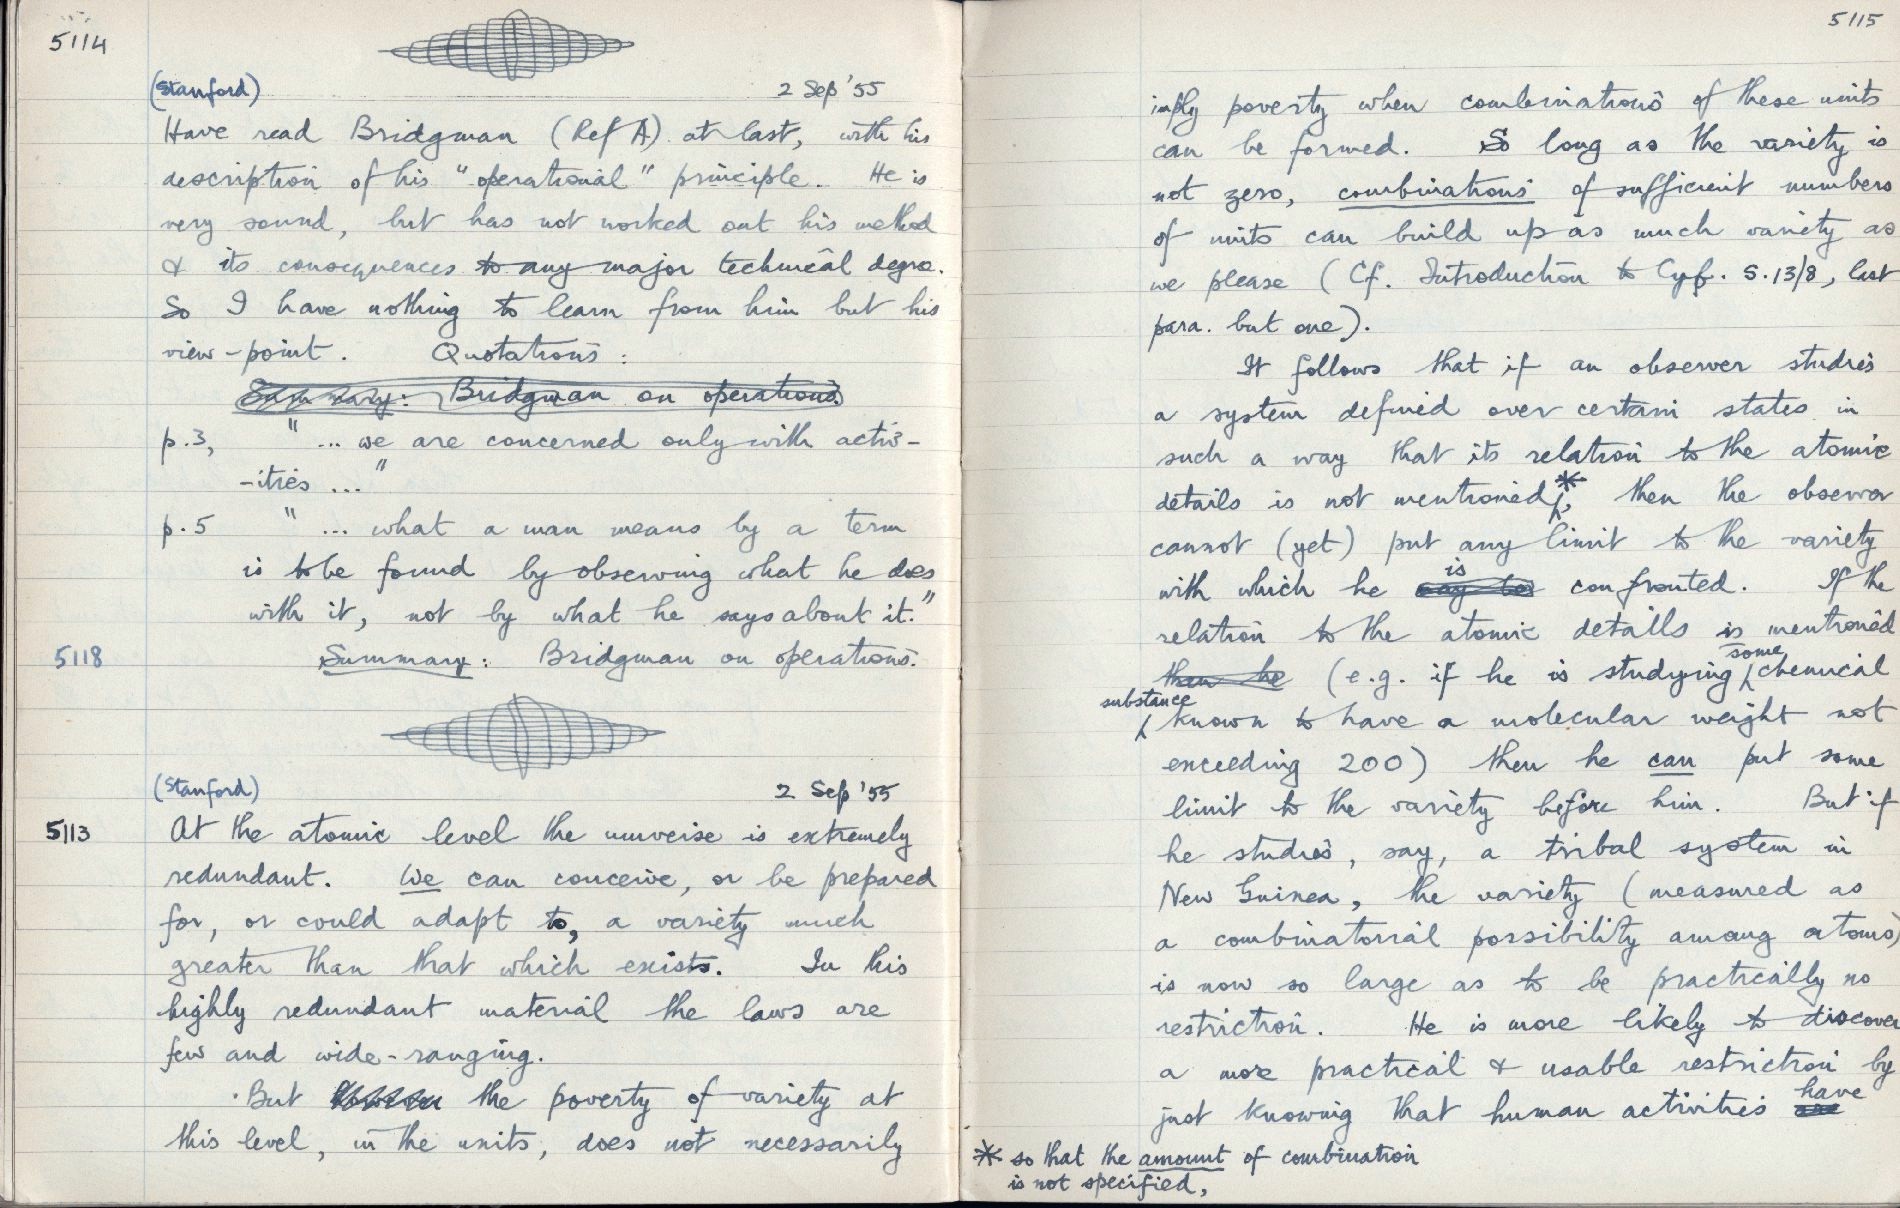 5114
(Stanford) 2 Sep '55
Have read Bridgman (Ref A) at last, with his
description of his "operational" principle. He is
very sound, but has not worked out his method
& its consequences to any major technical degree.
So I have nothing to learn from him but his
view-point. Quotations:
Summary: Bridgman on operations.
p.3, "... we are concerned only with activ-
-ities ..."
p.5 "... what a man means by a term
is to be found by observing what he does
with it, not by what he says about it."
5118 Summary: Bridgman on operations.
(Stanford) 2 Sep '55
5113 At the atomic level the universe is extremely
redundant. We can conceive, or be prepared
for, or could adapt to, a variety much
greater than that which exists. In this
highly redundant material the laws are
few and wide-ranging.
But the poverty of variety at
this level, in the units, does not necessarily
5115
imply poverty when combinations of these units
can be formed. So long as the variety is
not zero, combinations of sufficient numbers
of units can build up as much variety as
we please (Cf. Introduction to Cyb. S.13/8, last
para. but one).
It follows that if an observer studies
a system defined over certain states in
such a way that its relation to the atomic
details is not mentioned*, then the observer
cannot (yet) put any limit to the variety
with which he is confronted. If the
relation to the atomic details is mentioned
then he (e.g. if he is studying some chemical
substance known to have a molecular weight not
exceeding 200) then he can put some
limit to the variety before him. But if
he studies, say, a tribal system in
New Guinea, the variety (measured as
a combinatorial possibility among atoms)
is now so large as to be practically no
restriction. He is more likely to discover
a more practical & usable restriction by
just knowing that human activities have
* so that the amount of combination
is not specified,